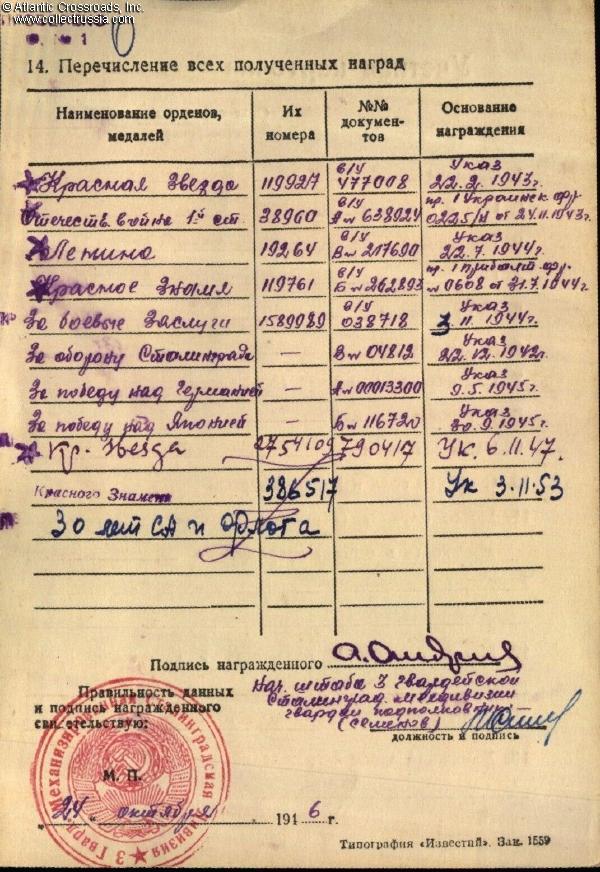 © Atlantic Crossroads, Inc.
www.collectrussia.com
№ 1
14. Перечисление всех полученных наград
Наименование орденов, медалей
Их номера
№№ документов
Основание награждения
Красная Звезда 119927 в/у 477008 Указ 22.2.1943г.
Отечеств. война 1й ст. 38960 А№ 638924 пр. 1 Украинск. фр. 0225/н от 24.11.1943г.
Ленина 19264 в/у В№ 217690 Указ 22.7.1944г.
Красное Знамя 119761 в/у Б№ 262893 пр. 1 Прибалт. фр. №0608 от 31.7.1944г.
За боевые Заслуги 1589989 в/у 038718 Указ 3.11.1944г.
За оборону Сталинграда — В№ 04812 Указ 22.12.1942г.
За победу над Германией — А№ 00013300 Указ 9.5.1945г.
За победу над Японией — Б№ 116720 Указ 30.9.1945г.
Кр. Звезда 2754109 790417 УК. 6.11.47.
Красного Знамени 386517 Ук 3.11.53
30 лет СА и Флота
Подпись награжденного
Правильность данных
и подпись награжденного
свидетельствую:
Нач. штаба 3 гвардейской
Сталинград. мехдивизии
гвардии подполковник
(Семенов)
должность и подпись
М. П.
3 Гвард. Механизированная Сталинградская дивизия
„24“ октября 1946 г.
Типография «Известий». Зак. 1559